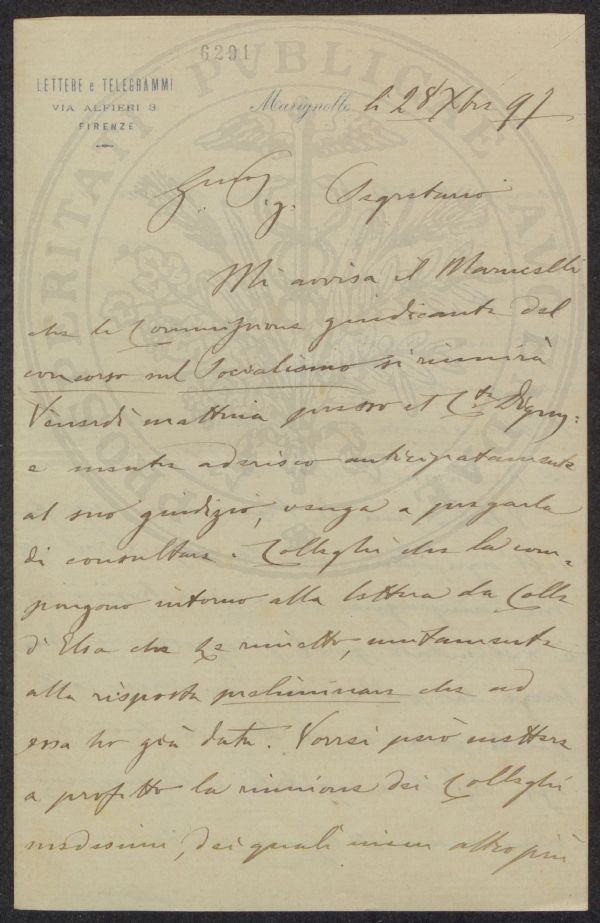 6291
LETTERE e TELEGRAMMI
VIA ALFIERI 3
FIRENZE
Marignolle li 28 Xbre 97
Sig. Segretario
Mi avvisa il Marucelli
che la Commissione giudicante del
concorso sul Socialismo si riunirà
Venerdì mattina presso il Cte Digny:
e mentre aderisco anticipatamente
al suo giudizio, vengo a pregarla
di consultare i Colleghi che la com=
pongono intorno alla lettera da Colle
d'Elsa che Le rimetto, unitamente
alla risposta preliminare che ad
essa ho già data. Vorrei però mettere
a profitto la riunione dei Colleghi
medesimi, dei quali niun altro più
PROSPERITATI PUBLICAE AUGENDAE